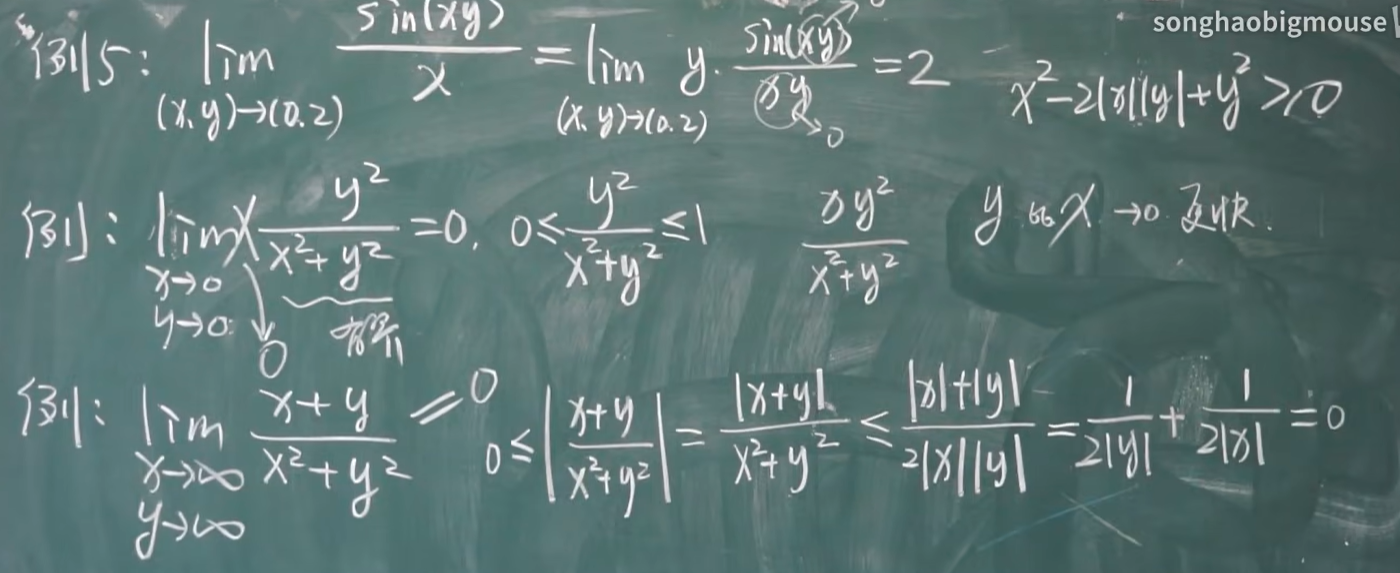 songhaobigmouse
例5: lim (x,y)→(0,2) sin(xy)/x = lim (x,y)→(0,2) y· sin(xy)/xy →0 = 2 x²-2|x||y|+y²≥0
例: lim x→0 y→0 x y²/x²+y² =0, 0≤ y²/x²+y² ≤1 xy²/x²+y² y x →0 极限.
0 有界
例: lim x→∞ y→∞ x+y/x²+y² = 0 0≤ |x+y/x²+y²| = |x+y|/x²+y² ≤ |x|+|y|/2|x||y| = 1/2|y| + 1/2|x| = 0